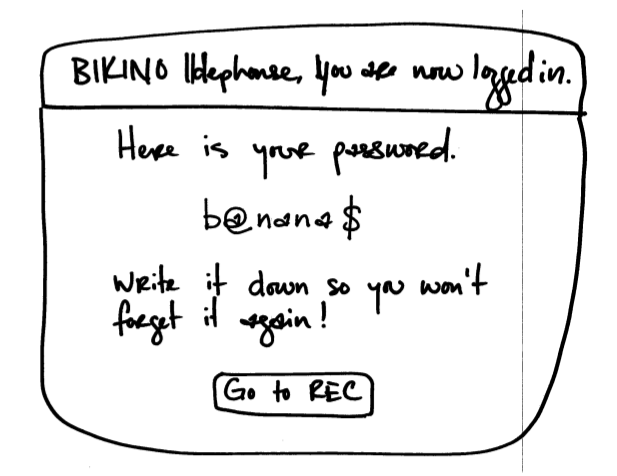 BIKINO Ildephonse, you are now logged in.
Here is your password.
b@nana$
Write it down so you won't
forget it again!
Go to REC